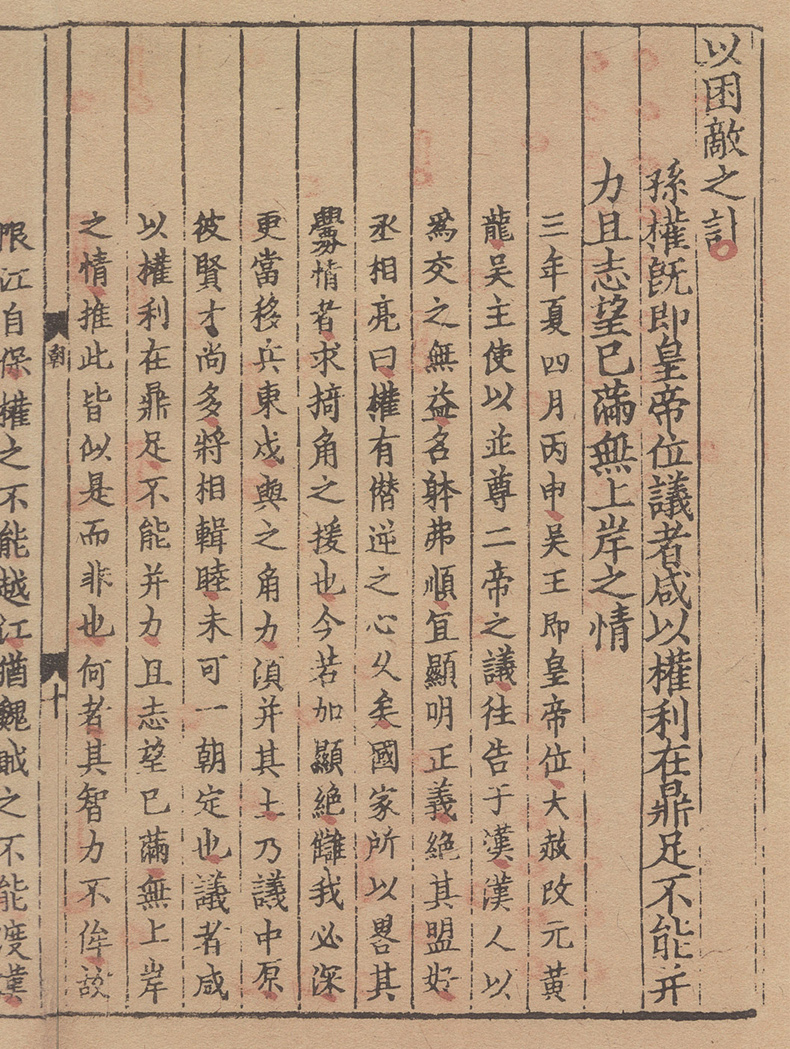 以困敵之計
孫權既即皇帝位議者咸以權利在鼎足不能并
力且志望已滿無上岸之情
三年夏四月丙申吴王即皇帝位大赦改元黃
龍吴主使以並尊二帝之議往告于漢漢人以
爲交之無益名躰弗順宜顯明正義絶其盟好
丞相亮曰權有僣逆之心乆矣國家所以畧其
釁情者求掎角之援也今若加顯絶讎我必深
更當移兵東戍與之角力湏并其土乃議中原
彼賢才尚多將相輯睦未可一朝定也議者咸
以權利在鼎足不能并力且志望已滿無上岸
之情推此皆似是而非也何者其智力不侔故
朝 十
限江自保權之不能越江猶魏賊之不能渡漢